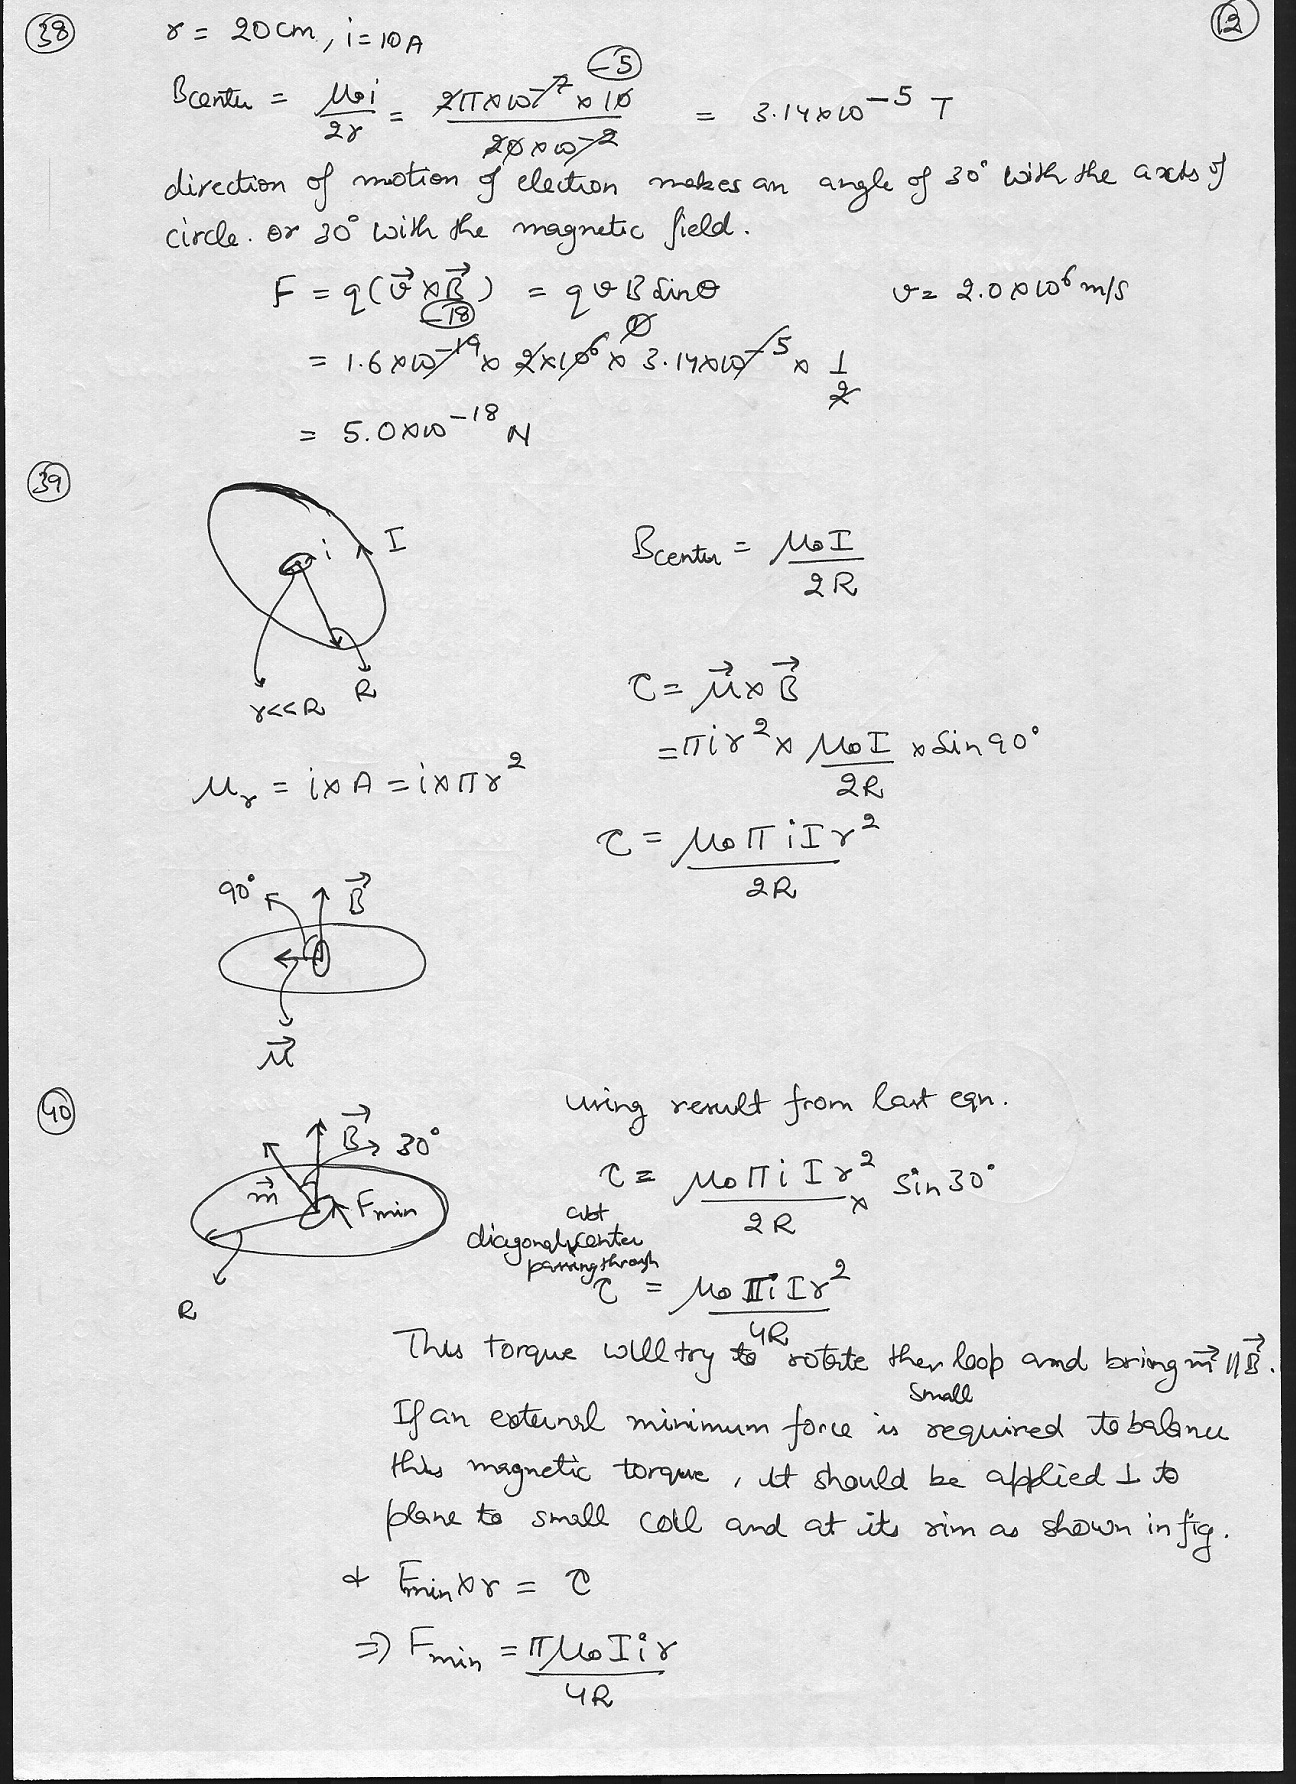 38 r = 20cm, i = 10A 12
Bcenter = μ₀i/2r = 2π×10⁻⁷ × 10/20×10⁻² = 3.14×10⁻⁵ T
-5
direction of motion of electron makes an angle of 30° with the axis of
circle. or 30° with the magnetic field.
F = q(v⃗ × B⃗) = qvB sinθ v = 2.0×10⁶ m/s
-18
= 1.6×10⁻¹⁹ × 2×10⁶ × 3.14×10⁻⁵ × 1/2
= 5.0×10⁻¹⁸ N
39
i I
Bcenter = μ₀I/2R
r<<R R
τ = μ⃗ × B⃗
= πir² × μ₀I/2R × sin90°
μr = i×A = i×πr²
τ = μ₀πiIr²/2R
90° B⃗
μ⃗
40 using result from last eqn.
B⃗ 30°
m⃗ Fmin
R
τ = μ₀πiIr²/2R × sin30°
abt
diagonal center
passing through
τ = μ₀πiIr²/4R
This torque will try to rotate the loop and bring m⃗ || B⃗.
small
If an external minimum force is required to balance
this magnetic torque, it should be applied ⊥ to
plane to small coil and at its rim as shown in fig.
& Fmin × r = τ
⇒ Fmin = πμ₀Iir/4R